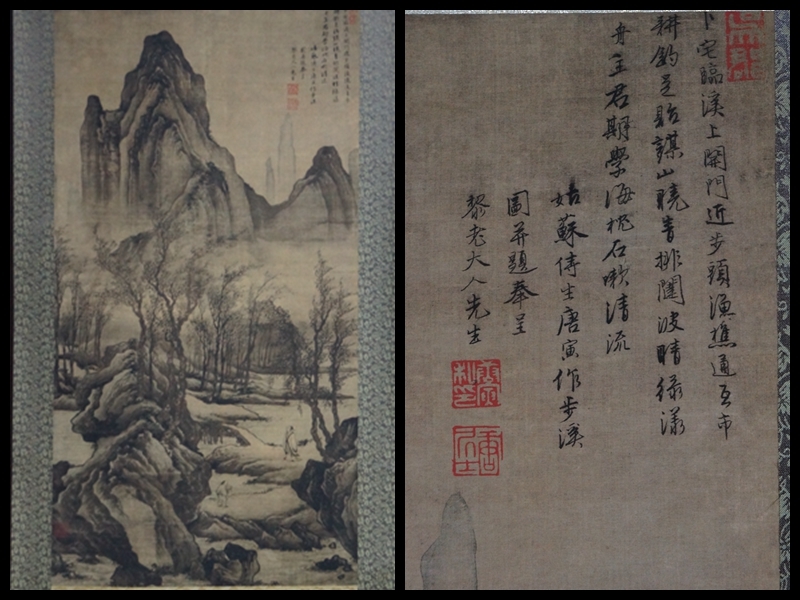 卜宅臨溪上開門近步頭漁樵通互市
耕釣足貽謀山曉青排闥波晴緑漾
舟主君期學海枕石漱清流
姑蘇侍生唐寅作步溪
圖并題奉呈
黎老大人先生
唐寅私印
唐居士